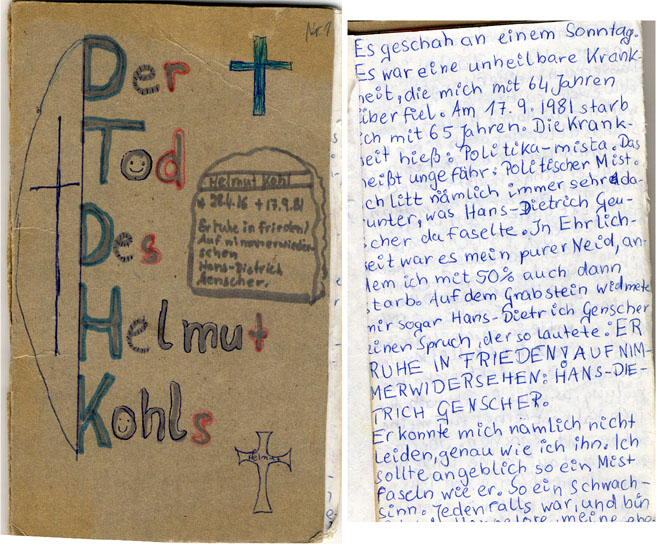 Nr. 1
Der
Tod
Des
Helmut
Kohls
Helmut Kohl
* 28.4.16 + 17.9.81
Er ruhe in frieden!
Auf nimmerwieder-
sehen
Hans-Dietrich
Genscher.
Helmut
Es geschah an einem Sonntag.
Es war eine unheilbare Krank-
heit, die mich mit 64 Jahren
überfiel. Am 17.9.1981 starb
ich mit 65 Jahren. Die Krank-
heit hieß: Politika-mista. Das
heißt ungefähr: Politischer Mist.
Ich litt nämlich immer sehr da-
runter, was Hans-Dietrich Gen-
scher da faselte. In Ehrlich-
keit war es mein purer Neid, an
dem ich mit 50% auch dann
starb. Auf dem Grabstein widmete
mir sogar Hans-Dietrich Genscher
einen Spruch, der so lautete: ER
RUHE IN FRIEDEN! AUF NIM-
MERWIDERSEHEN: HANS-DIE-
TRICH GENSCHER.
Er konnte mich nämlich nicht
leiden, genau wie ich ihn. Ich
sollte angeblich so ein Mist
faseln wie er. So ein Schwach-
sinn. Jedenfalls war, und bin
meine